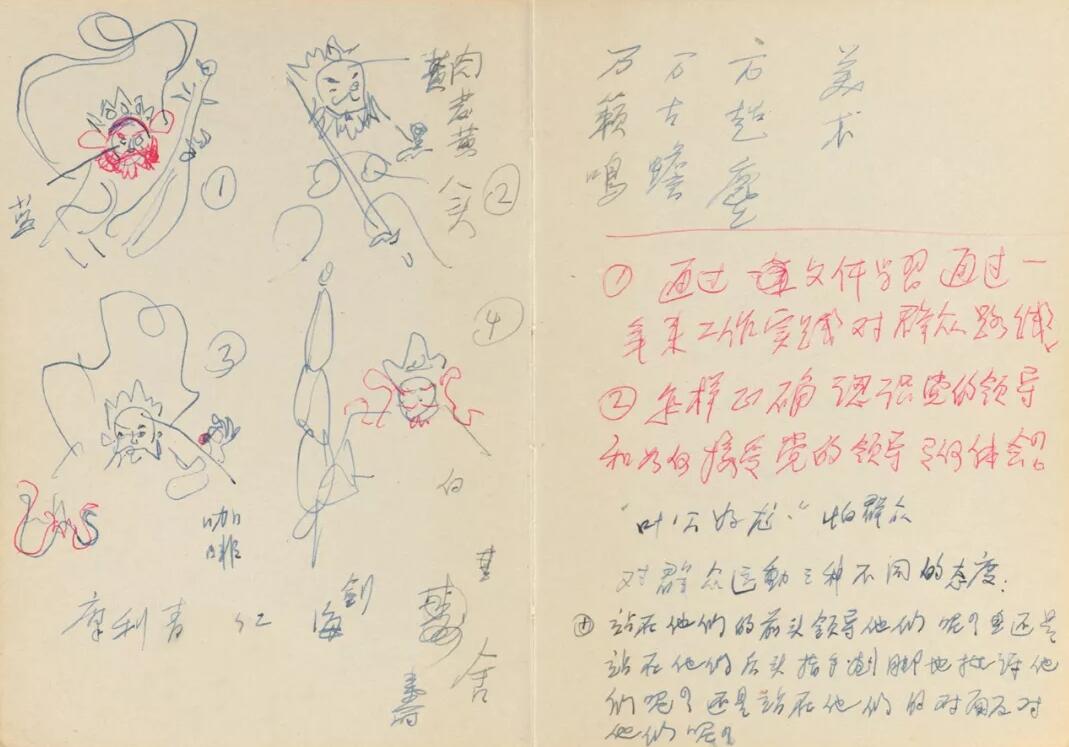 ①
蓝
黄肉
老黄
八头
②
③
咖啡
④
白
摩利青 仁 海 剑
甘
寿
舍
万籁鸣
万古蟾
万超尘
美术
① 通过文件学习通过一
年来工作实践对群众路线
② 怎样正确认识党的领导
和如何接受党的领导
“叶公好龙”怕群众
对群众运动三种不同的态度.
站在他们的前头领导他们呢?还是
站在他们后头指手划脚地批评他
们呢?还是站在他们的对面反对
他们呢?